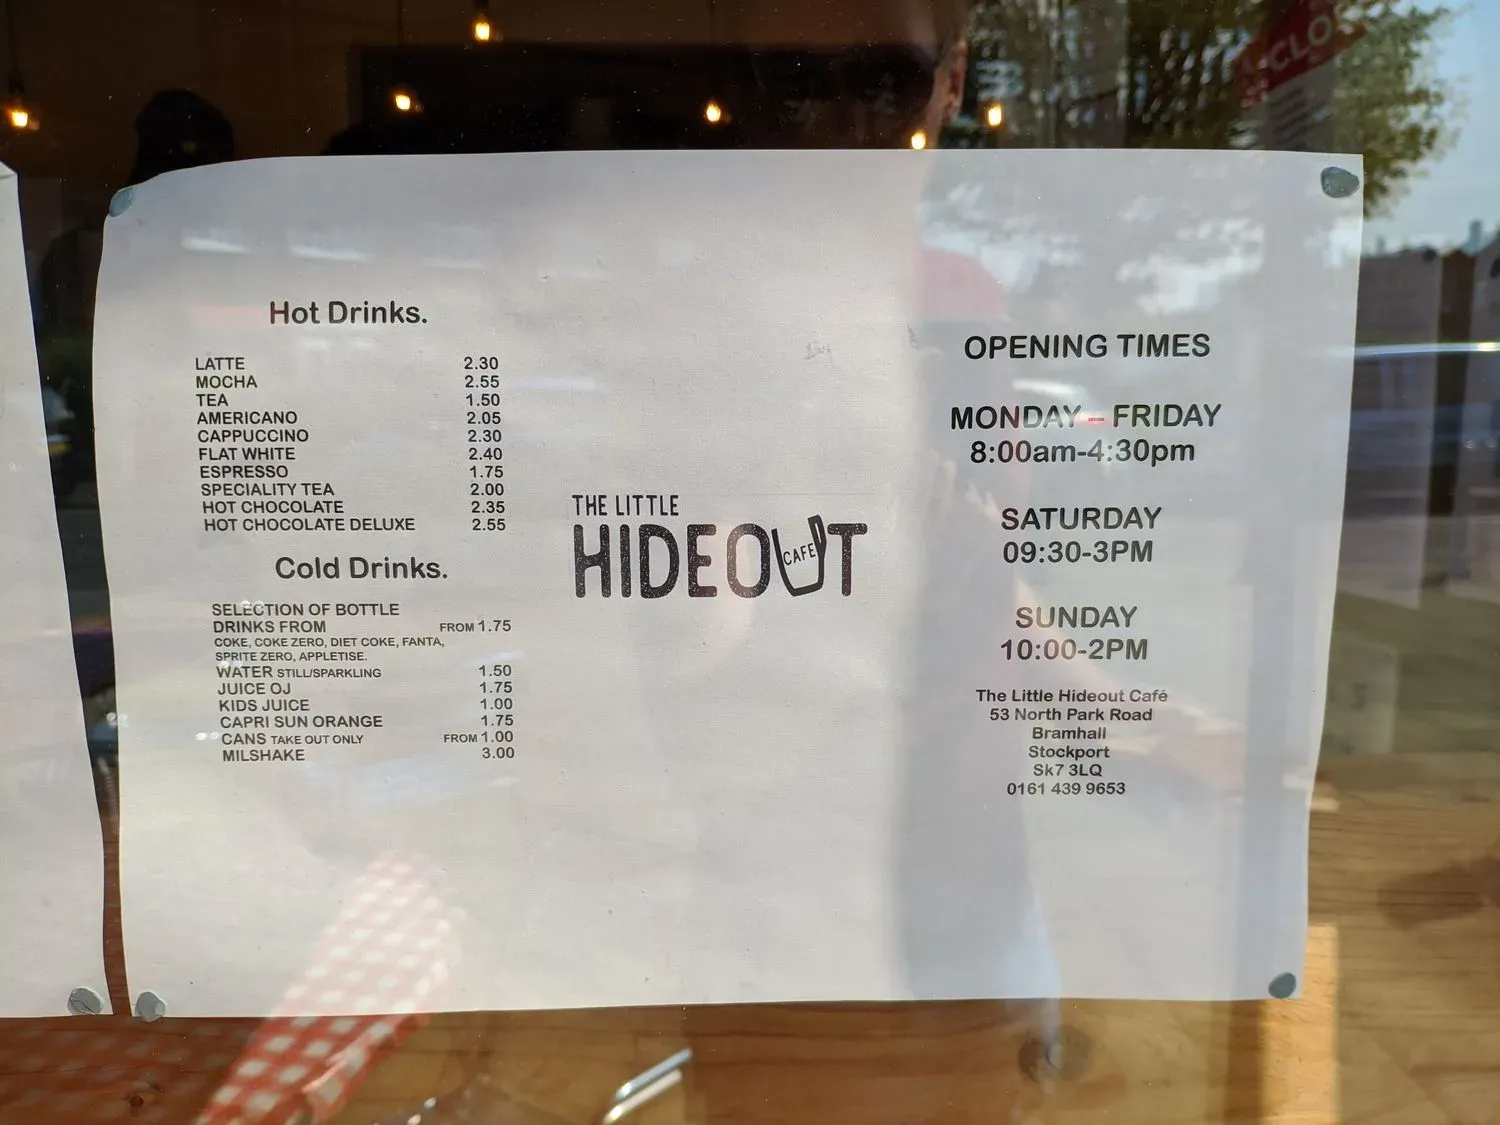 Hot Drinks.
LATTE 2.30
MOCHA 2.55
TEA 1.50
AMERICANO 2.05
CAPPUCCINO 2.30
FLAT WHITE 2.40
ESPRESSO 1.75
SPECIALITY TEA 2.00
HOT CHOCOLATE 2.35
HOT CHOCOLATE DELUXE 2.55
Cold Drinks.
SELECTION OF BOTTLE
DRINKS FROM FROM 1.75
COKE, COKE ZERO, DIET COKE, FANTA,
SPRITE ZERO, APPLETISE.
WATER STILL/SPARKLING 1.50
JUICE OJ 1.75
KIDS JUICE 1.00
CAPRI SUN ORANGE 1.75
CANS TAKE OUT ONLY FROM 1.00
MILSHAKE 3.00
THE LITTLE
HIDEOUT
CAFE
OPENING TIMES
MONDAY – FRIDAY
8:00am-4:30pm
SATURDAY
09:30-3PM
SUNDAY
10:00-2PM
The Little Hideout Café
53 North Park Road
Bramhall
Stockport
Sk7 3LQ
0161 439 9653